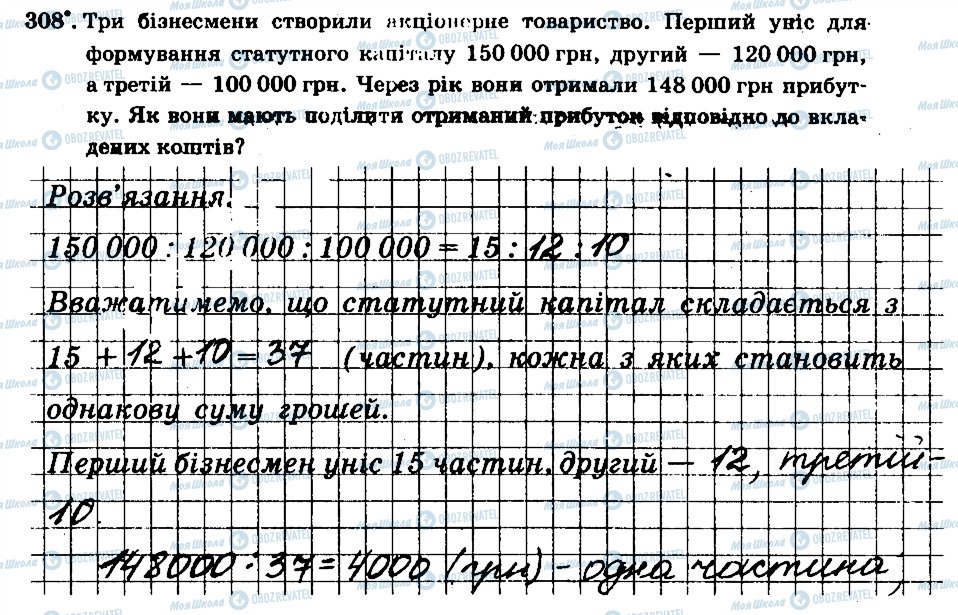 308°. Три бізнесмени створили акціонерне товариство. Перший уніс для
формування статутного капіталу 150 000 грн, другий — 120 000 грн,
а третій — 100 000 грн. Через рік вони отримали 148 000 грн прибут-
ку. Як вони мають поділити отриманий прибуток відповідно до вкла-
дених коштів?
Розв'язання.
150 000 : 120 000 : 100 000 = 15 : 12 : 10
Вважатимемо, що статутний капітал складається з
15 + 12 + 10 = 37 (частин), кожна з яких становить
однакову суму грошей.
Перший бізнесмен уніс 15 частин, другий — 12, третій-
10.
148000 : 37 = 4000 (грн) - одна частина;